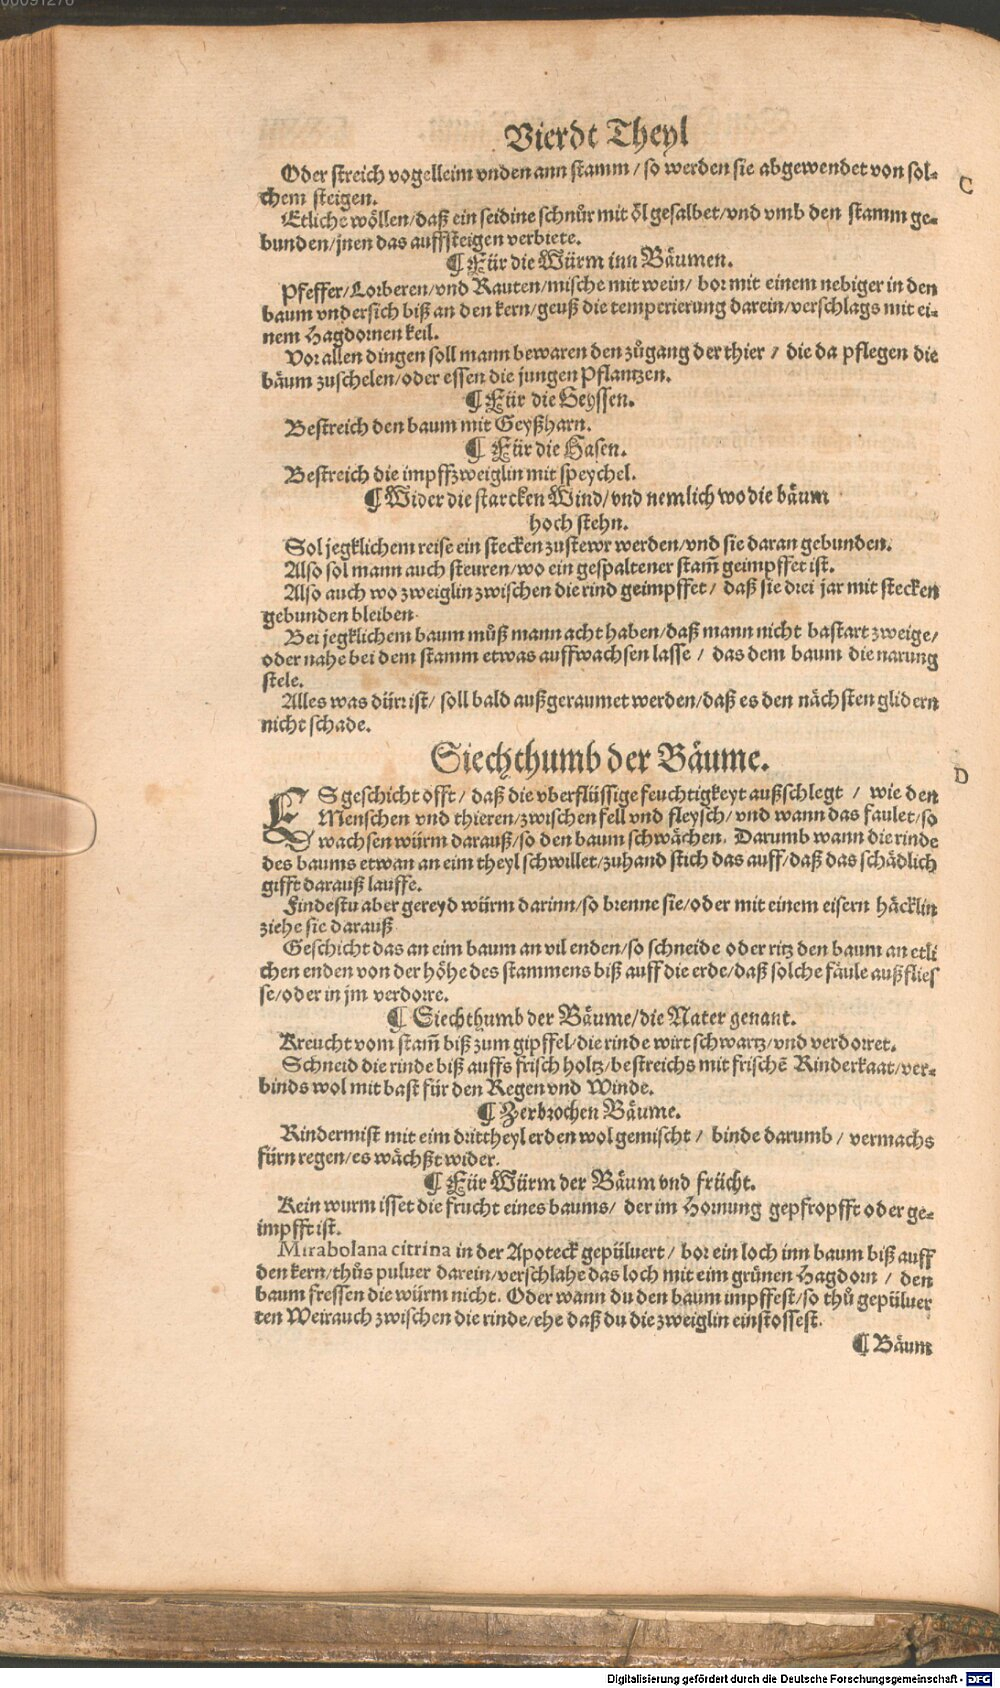 00091276
Vierdt Theyl
Oder streich vogelleim vnden ann stamm / so werden sie abgewendet von sol-
chem steigen.
C
Etliche͂ wöllen/daß ein seidine schnůr mit öl gesalbet/vnd vmb den stamm ge-
bunden/jnen das auffsteigen verbiete.
¶ Für die Würm inn Bäumen.
Pfeffer/Lorberen/vnd Rauten/mische mit wein/ bor mit einem nebiger in den
baum vndersich biß an den kern/geuß die temperierung darein/verschlags mit ei-
nem Hagdornen keil.
Vor allen dingen soll mann bewaren den zůgang der thier / die da pflegen die
bäum zuschelen/oder essen die jungen Pflantzen.
¶ Für die Geyssen.
Bestreich den baum mit Geyßharn.
¶ Für die Hasen.
Bestreich die impffzweiglin mit speychel.
¶ Wider die starcken Wind/vnd nemlich wo die bäum
hoch stehn.
Sol jegklichem reise ein stecken zustewr werden/vnd sie daran gebunden.
Also sol mann auch steuren/wo ein gespaltener stam̃ geimpffet ist.
Also auch wo zweiglin zwischen die rind geimpffet / daß sie drei jar mit stecken
gebunden bleiben.
Bei jegklichem baum můß mann acht haben/daß mann nicht bastart zweige/
oder nahe bei dem stamm etwas auffwachsen lasse / das dem baum die narung
stele.
Alles was dürr ist/ soll bald außgeraumet werden/daß es den nächsten glidern
nicht schade.
Siechthumb der Bäume.
D
ES geschicht offt / daß die vberflüssige feuchtigkeyt außschlegt / wie den
Menschen vnd thieren/zwischen fell vnd fleysch/vnd wann das faulet/so
wachsen würm darauß/so den baum schwächen. Darumb wann die rinde
des baums etwan an eim theyl schwillet/zuhand stich das auff/daß das schädlich
gifft darauß lauffe.
Findestu aber gereyd würm darinn/so brenne sie/oder mit einem eisern häcklin
ziehe sie darauß
Geschicht das an eim baum an vil enden/so schneide oder ritz den baum an etli
chen enden von der höhe des stammens biß auff die erde/daß solche fäule außflies
se/oder in jm verdorre.
¶ Siechthumb der Bäume/die Nater genant.
Kreucht vom stam̃ biß zum gipffel/die rinde wirt schwartz/vnd verdorret.
Schneid die rinde biß auffs frisch holtz/bestreichs mit frische͂ Rinderkaat/ver-
binds wol mit bast für den Regen vnd Winde.
¶ Zerbrochen Bäume.
Rindermist mit eim drittheyl erden wol gemischt / binde darumb / vermachs
fürn regen/es wächßt wider.
¶ Für Würm der Bäum vnd frücht.
Kein wurm isset die frucht eines baums/ der im Hornung gepfropfft oder ge-
impfft ist.
Mirabolana citrina in der Apoteck gepüluert / bor ein loch inn baum biß auff
den kern/thůs puluer darein/verschlahe das loch mit eim grünen Hagdorn / den
baum fressen die würm nicht. Oder wann du den baum impffest/so thů gepüluer
ten Weirauch zwischen die rinde/ehe daß du die zweiglin einstossest.
¶ Bäum
Digitalisierung gefördert durch die Deutsche Forschungsgemeinschaft - DFG